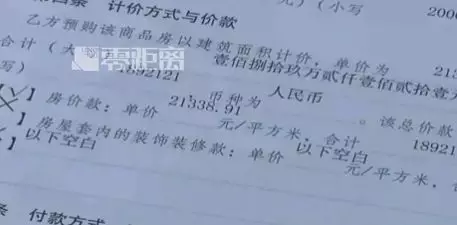 元)(小写 2000
条 计价方式与价款
乙方预购该商品房以建筑面积计价,单价为 213
合计(大 壹佰捌拾玖万贰仟壹佰贰拾壹
写) 1892121 币种为 人民币 。该总价款
【√】房价款:单价 21338.91 元/平方米,合计 18921
房屋套内的装饰装修款:单价 以下空白 元/平方米,
以下空白
条 付款方式
零距离